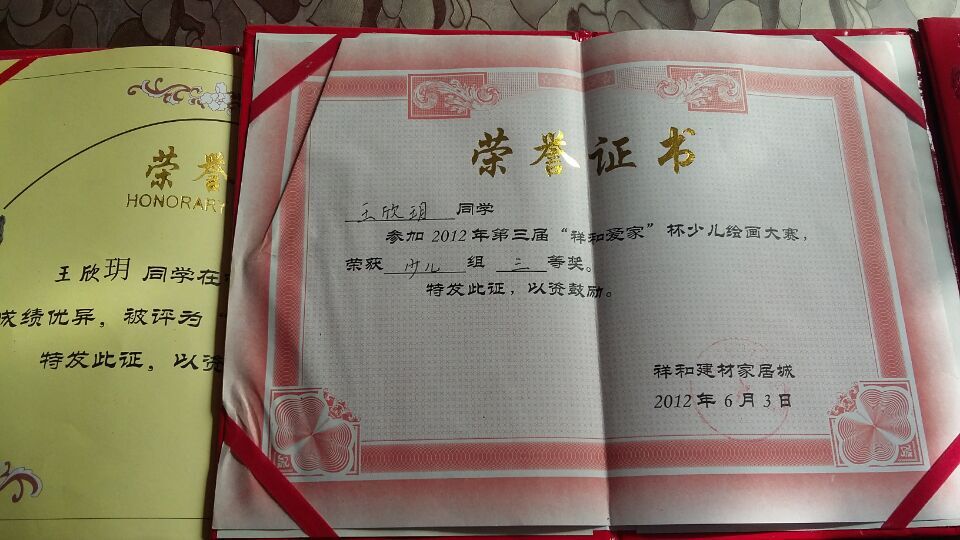 荣誉
HONORARY
王欣玥 同学在
成绩优异，被评为“
特发此证，以资
荣誉证书
王欣玥 同学
参加 2012 年第三届“祥和爱家”杯少儿绘画大赛，
荣获 少儿 组 三 等奖。
特发此证，以资鼓励。
祥和建材家居城
2012 年 6 月 3 日